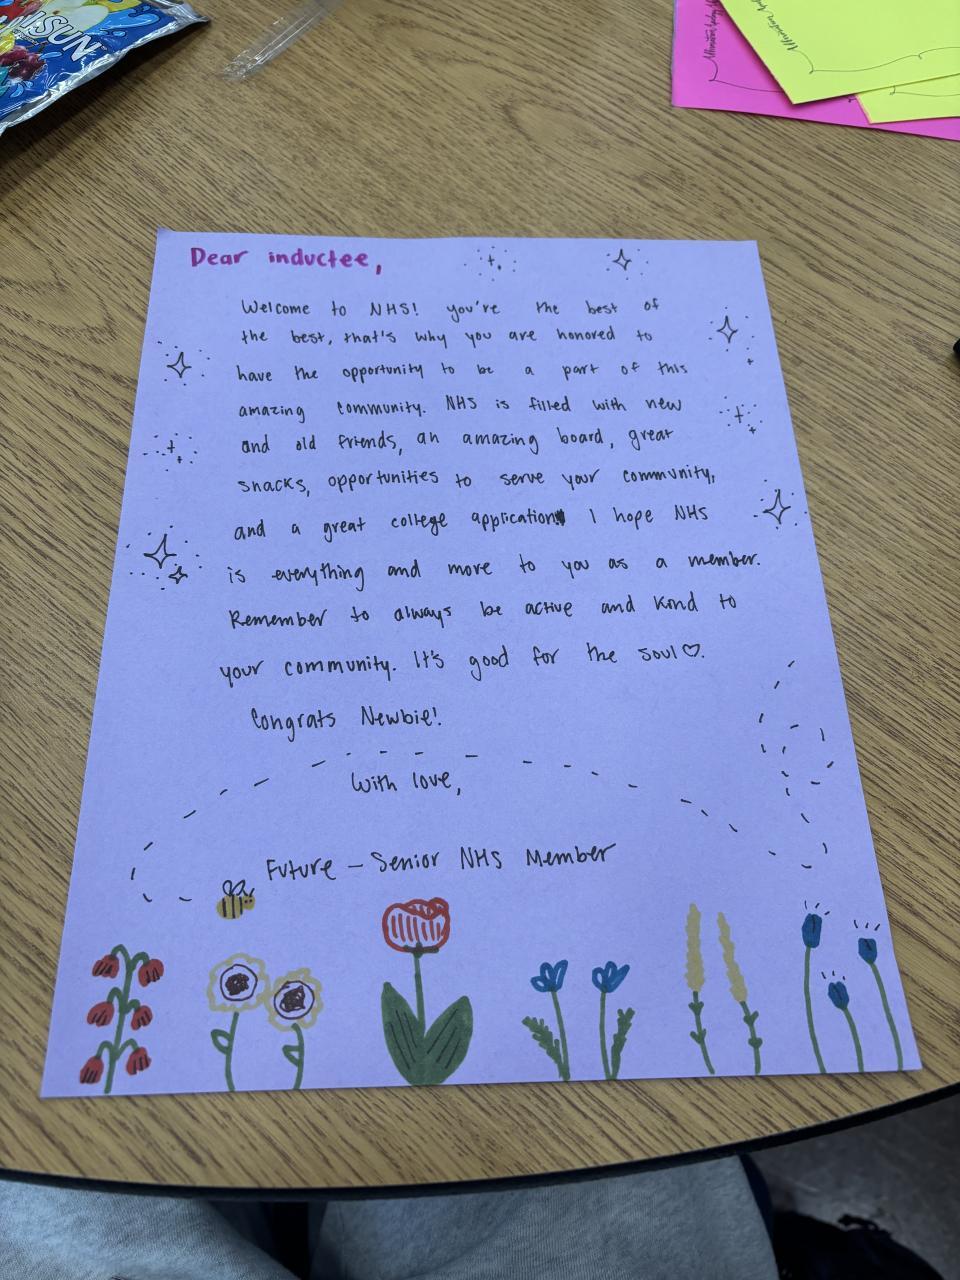 Dear inductee,
Welcome to NHS! you're the best of
the best, that's why you are honored to
have the opportunity to be a part of this
amazing community. NHS is filled with new
and old friends, an amazing board, great
snacks, opportunities to serve your community,
and a great college application I hope NHS
is everything and more to you as a member.
Remember to always be active and kind to
your community. It's good for the soul♡.
Congrats Newbie!
With love,
Future – Senior NHS Member